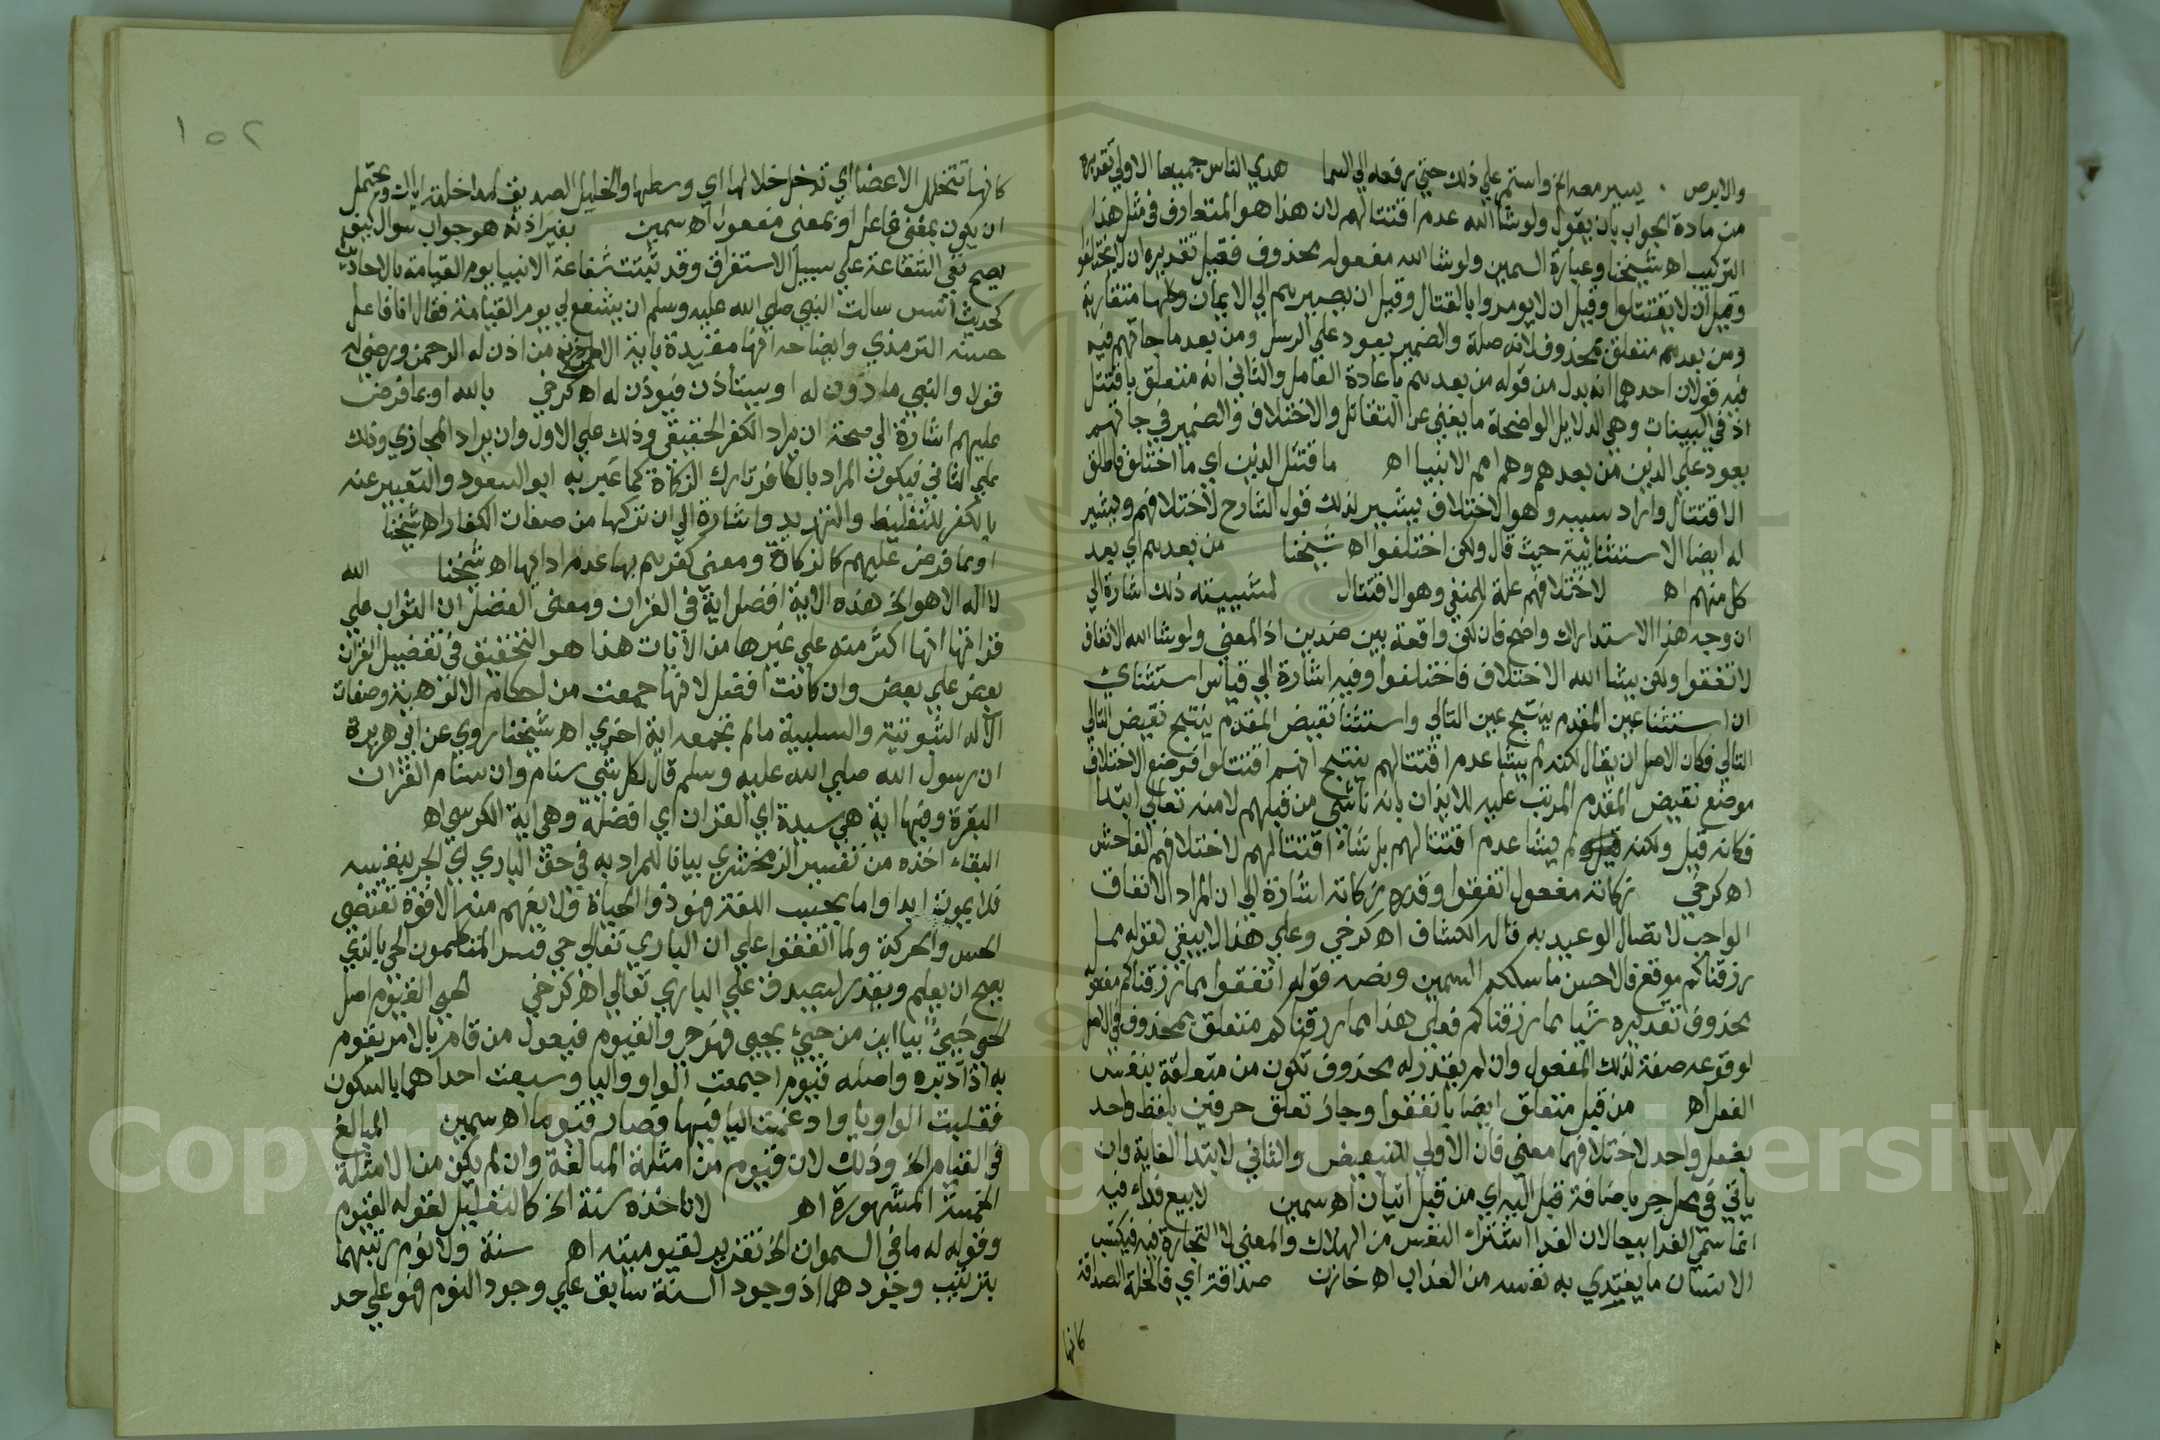 والابرص يسير معه الخ واستمر علي ذلك حتي رفعه الي السما هدي الناس جميعا الاولي تقديره
من مادة الجواب بان يقول ولو شا الله عدم اقتتالهم لان هذا هو المتعارف في مثل هذا
التركيب اه شيخنا وعبارة السمين ولو شا الله مفعوله محذوف فقيل تقديره ان لا يختلفوا
وقيل ان لا يقتتلوا وقيل ان لا يومروا بالقتال وقيل ان يصيرهم الي الايمان وكلها متقاربة
ومن بعدهم متعلق بمحذوف لانه صلة والضمير يعود علي الرسل ومن بعد ما جاتهم فيه
فيه قولان احدهما انه بدل من قوله من بعدهم باعادة العامل والثاني انه متعلق باقتتل
اذ في البينات وهي الدلايل الواضحة ما يغني عن التقاتل والاختلاف والضمير في جاتهم
يعود علي الذين من بعدهم وهم امم الانبيا اه ما اقتتل الذين اي ما اختلف فاطلق
الاقتتال واراد سببه وهو الاختلاف يشير لذلك قول الشارح لاختلافهم ويشير
له ايضا الاستثنائية حيث قال ولكن اختلفوا اه شيخنا من بعدهم اي بعد
كل منهم اه لاختلافهم علة للمنفي وهو الاقتتال لمشيئته ذلك اشارة الي
ان وجه هذا الاستدراك واضح فان لكن واقعة بين ضدين اذ المعني ولو شا الله الاتفاق
لاتفقوا ولكن يشا الله الاختلاف فاختلفوا وفيه اشارة الي قياس استثنائ
ان استثنا عين المقدم ينتج عين التالي واستثنا نقيض المقدم ينتج نقيض التالي
التالي فكان الاصل ان يقال لكنه لم يشا عدم اقتتالهم ينتج انهم اقتتلوا فوضع الاختلاف
موضع نقيض المقدم المرتب عليه للايذان بانه ناشي من قبلهم لا منه تعالي ابتدا
فكانه قيل ولكنه لم يشا عدم اقتتالهم بل شاء اقتتالهم لاختلافهم الفاحش
اه كرخي زكاته مفعول انفقوا وقدره زكاته اشارة الي ان المراد الانفاق
الواجب لاتصال الوعيد به قاله الكشاف اه كرخي وعلي هذا لا يبقي لقوله مما
رزقناكم موقع فالاحسن ما سلكه السمين ونصه قوله انفقوا مما رزقناكم مفعوله
محذوف تقديره شيا مما رزقناكم فعلي هذا مما رزقناكم متعلق بمحذوف في الاصل
لوقوعه صفة لذلك المفعول وان لم يقدر له محذوف تكون من متعلقة بنفس
الفعل اه من قبل متعلق ايضا بانفقوا وجاز تعلق حرفين بلفظ واحد
بفعل واحد لاختلافهما معني فان الاولي للتبعيض والثاني لابتدا الغاية وان
ياتي في محل جر باضافة قبل اليه اي من قبل اتيان اه سمين لا بيع فداء فيه
انما سمي الفدا بيعا لان الفدا اشتراء النفس من الهلاك والمعني لا تجارة فيه فيكتسب
الانسان ما يفتدي به نفسه من العذاب اه خازن صداقة اي فالخلة الصداقة
كانها
١٥٢
كانها تتخلل الاعضا اي تدخل خلالها اي وسطها والخليل الصديق لمداخلته اياك ويحتمل
ان يكون بمعني فاعل او بمعني مفعول اه سمين بغير اذنه هو جواب سوال كيف
يصح نفي الشفاعة علي سبيل الاستغراق وقد ثبتت شفاعة الانبيا يوم القيامة بالاحاديث
كحديث انس سالت النبي صلي الله عليه وسلم ان يشفع لي يوم القيامة فقال انا فاعل
حسنه الترمذي وايضاحه انها مقيدة باية الا من اذن له الرحمن ورضي له
قولا والنبي ماذون له او يستاذن فيوذن له اه كرخي بالله او بما فرض
عليهم اشارة الي صحة ان يراد الكفر الحقيقي وذلك علي الاول وان يراد المجازي وذلك
علي الثاني فيكون المراد بالكافر تارك الزكاة كما عبر به ابو السعود والتعبير عنه
بالكفر للتغليظ والتهديد واشارة الي ان تركها من صفات الكفار اه شيخنا
او بما فرض عليهم كالزكاة ومعني كفرهم بها عدم ادايها اه شيخنا الله
لا اله الا هو الخ هذه الاية افضل اية في القران ومعني الفضل ان الثواب علي
قراتها اكثر منه علي غيرها من الآيات هذا هو التحقيق في تفضيل القران
بعض علي بعض وان كانت افضل لانها جمعت من احكام الالوهية وصفات
الاله الثبوتية والسلبية ما لم تجمعه اية اخري اه شيخنا روي عن ابي هريرة
ان رسول الله صلي الله عليه وسلم قال لكل شي سنام وان سنام القران
البقرة وفيها اية هي سيدة اي القران اي افضله وهي اية الكرسي اه
البقاء اخذه من تفسير الزمخشري بيانا للمراد به في حق الباري اي الحي بنفسه
فلا يموت ابدا واما بحسب اللغة فهو ذو الحياة ولا يفهم منه الا قوة تقتضي
الحس والحركة ولما اتفقوا علي ان الباري تعالي حي فسر المتكلمون الحي بالذي
يصح ان يعلم ويقدر ليصدق علي الباري تعالي اه كرخي الحي القيوم اصل
الحي حيي بيا اين من حيي يحيي فهو حي والقيوم فيعول من قام بالامر يقوم
به اذا دبره واصله قيووم اجتمعت الواو واليا وسبقت احداهما بالسكون
فقلبت الواو يا وادغمت اليا فيها فصار قيوما اه سمين المبالغ
في القيام الخ وذلك لان قيوم من امثلة المبالغة وان لم يكن من الامثلة
الخمسة المشهورة اه لا تاخذه سنة الخ كالتعليل لقوله القيوم
وقوله له ما في السموات الخ تقرير لقيوميته اه سنة ولا نوم رتبهما
بترتيب وجودهما اذ وجود السنة سابق علي وجود النوم فهو علي حد
Copyright © King Saud University